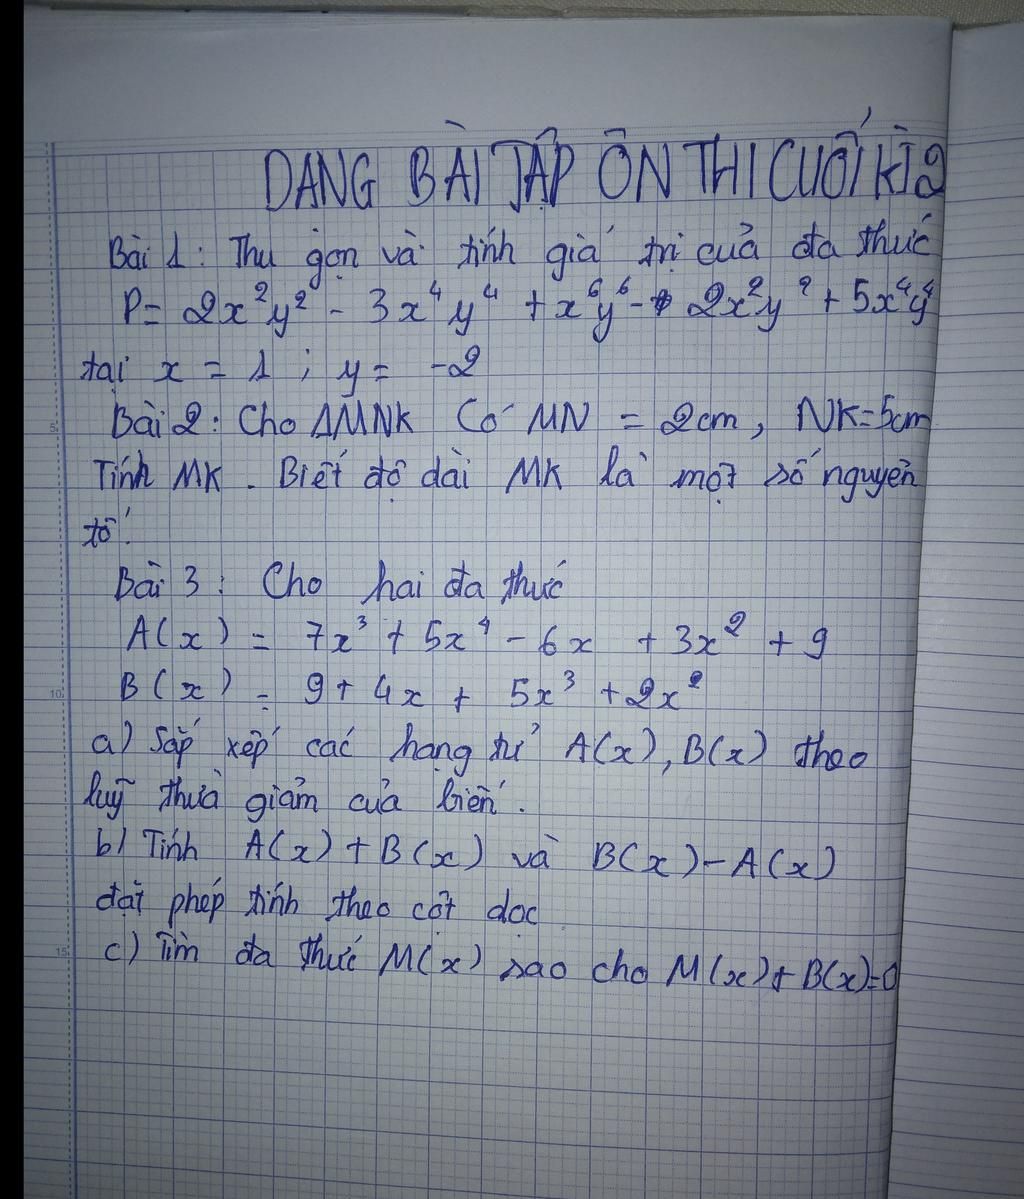 DẠNG BÀI TẬP ÔN THI CUỐI KÌ 2
Bài 1: Thu gọn và tính giá trị của đa thức
P = 2x²y² - 3x⁴y⁴ + x⁶y⁶ - 2x²y² + 5x⁴y⁴
tại x = 1 ; y = -2
Bài 2: Cho ΔMNK Có MN = 2cm, NK=5cm
Tính MK. Biết độ dài MK là một số nguyên
tố.
Bài 3: Cho hai đa thức
A(x) = 7x³ + 5x⁴ - 6x + 3x² + 9
B(x) = 9 + 4x + 5x³ + 2x²
a) Sắp xếp các hạng tử A(x), B(x) theo
luỹ thừa giảm của biến.
b) Tính A(x) + B(x) và B(x) - A(x)
đặt phép tính theo cột dọc
c) Tìm đa thức M(x) sao cho M(x) + B(x)=0
5
10
15